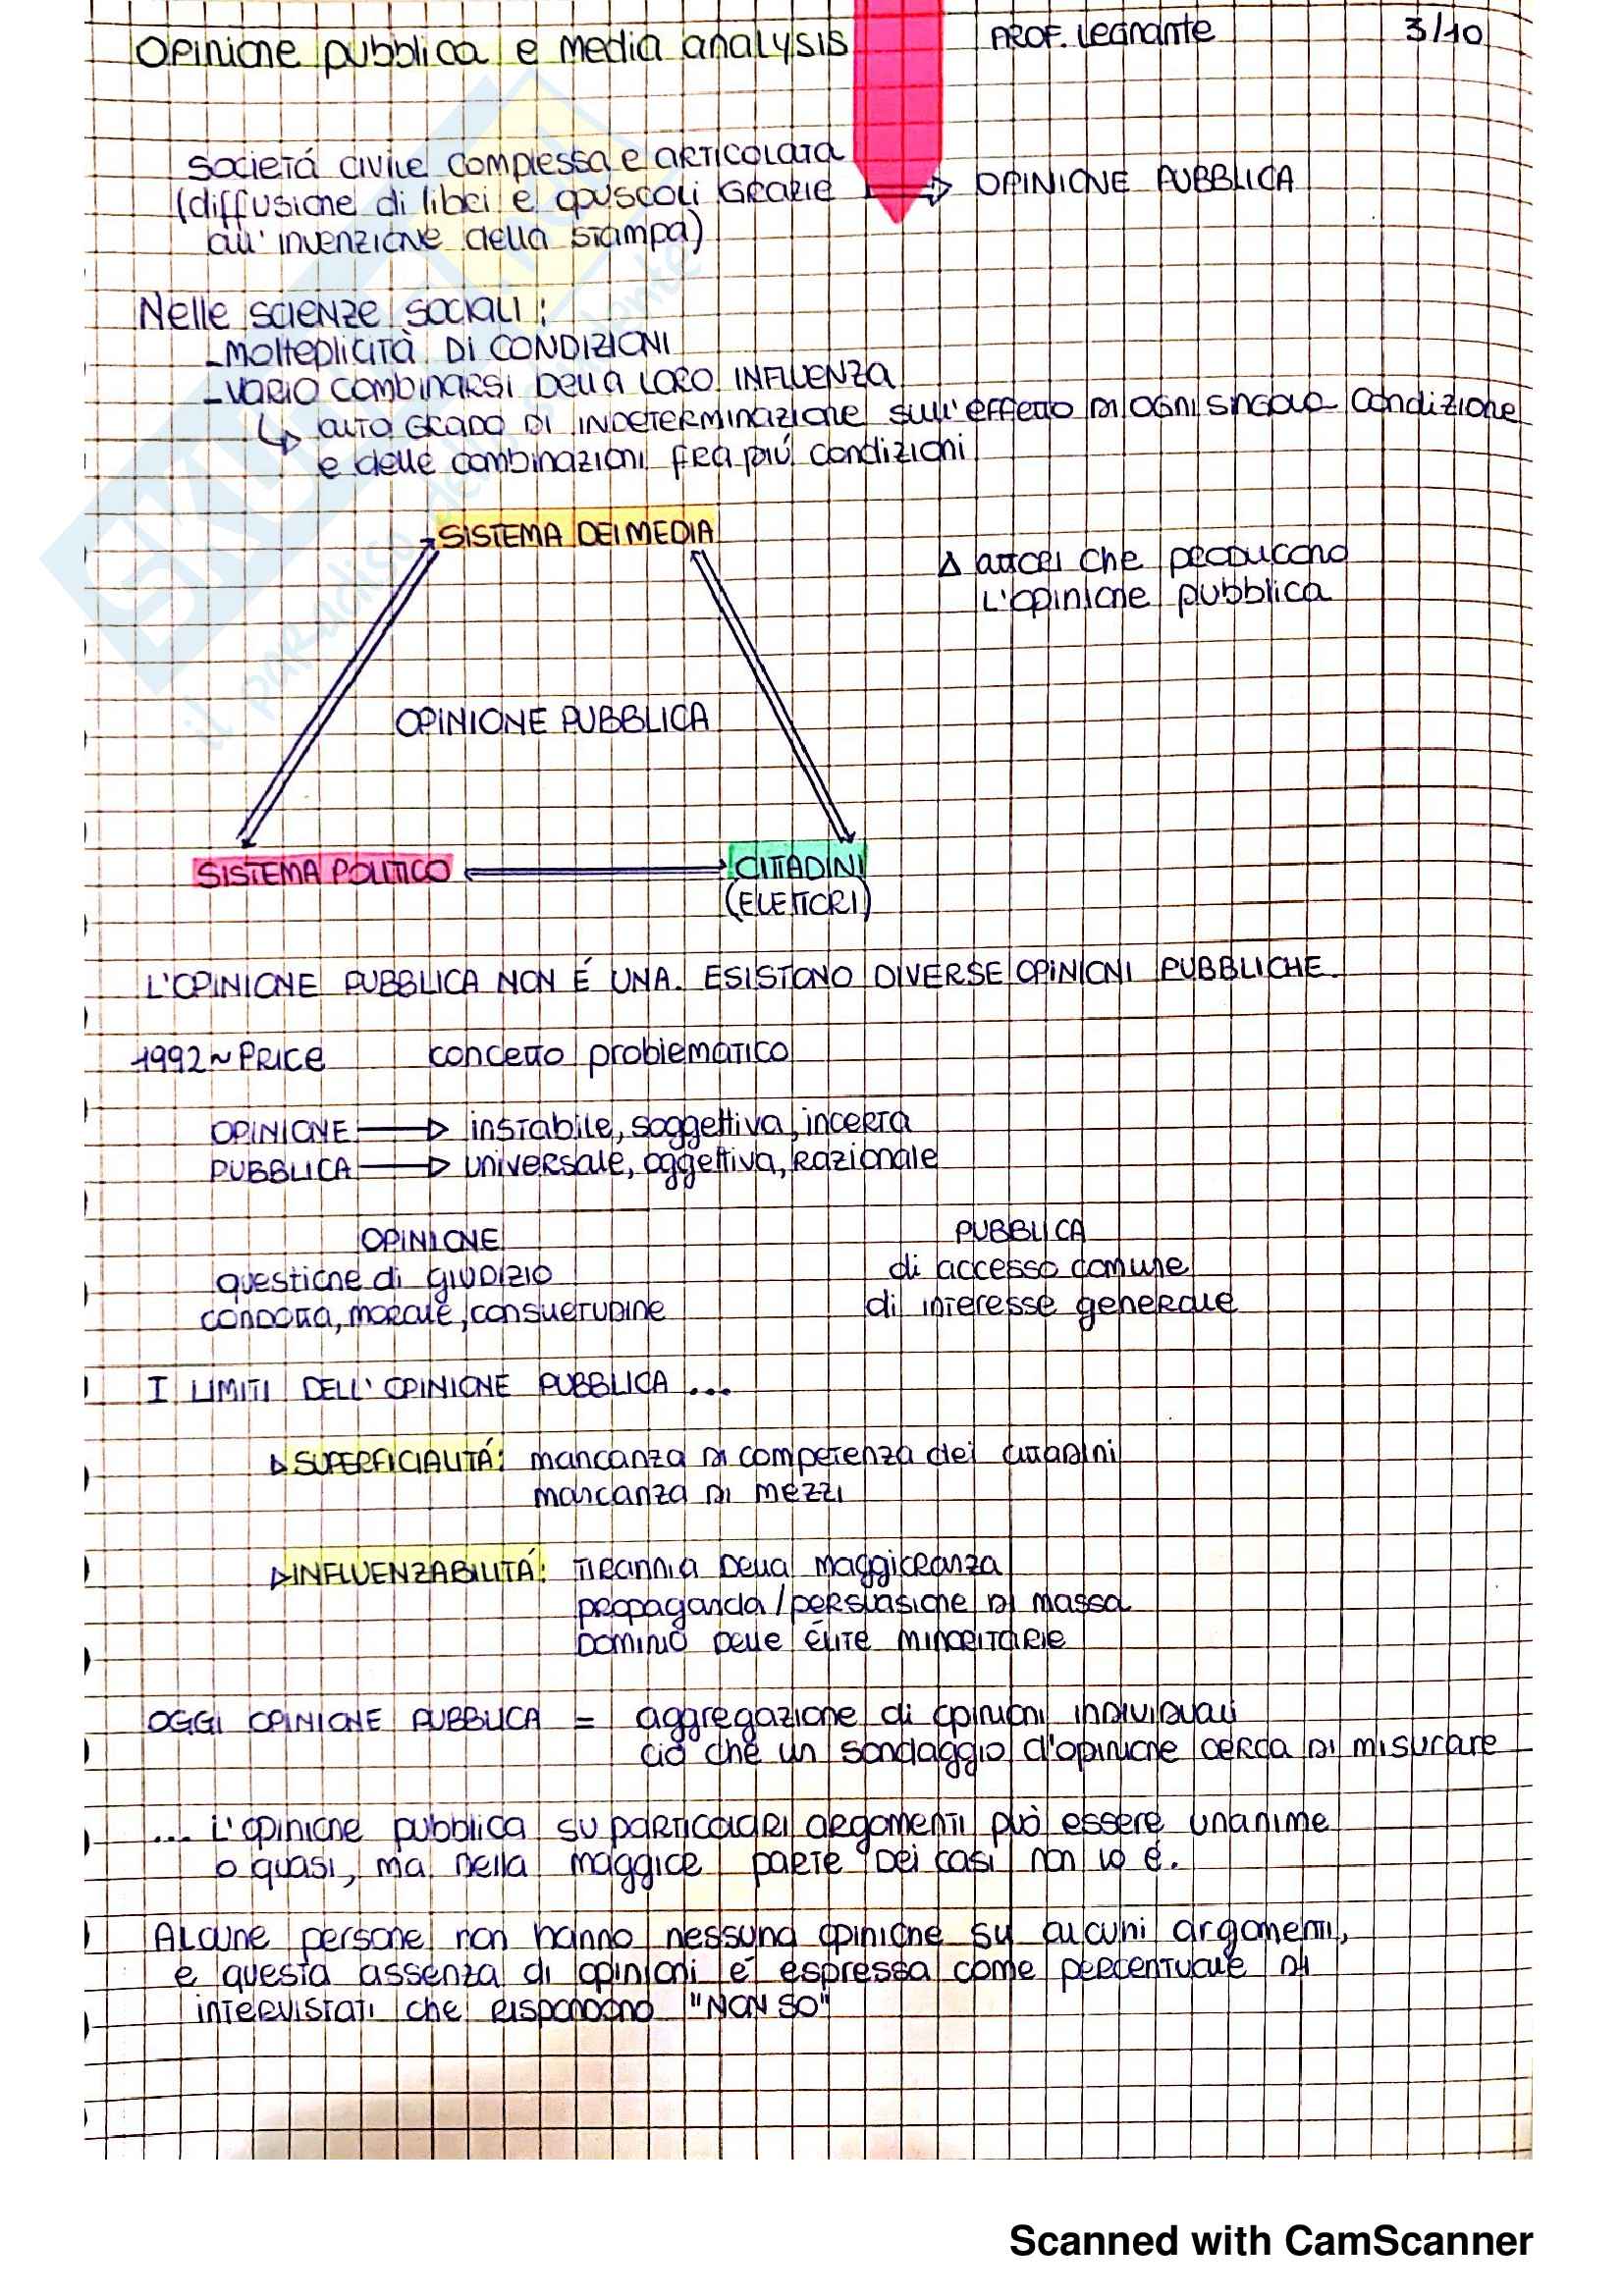 Opinione pubblica e media analysis
PROF. Legnante
3/10
Società civile complessa e articolata
(diffusione di libri e opuscoli grazie
all'invenzione della stampa)
OPINIONE PUBBLICA
Nelle scienze sociali:
- MOLTEPLICITÀ DI CONDIZIONI
- VARIO COMBINARSI DELLA LORO INFLUENZA
↳ alto GRADO DI INDETERMINAZIONE sull'effetto di ogni singola condizione
e delle combinazioni fra più condizioni
SISTEMA DEI MEDIA
Δ attori che producono
l'opinione pubblica
OPINIONE PUBBLICA
SISTEMA POLITICO
CITTADINI
(ELETTORI)
L'OPINIONE PUBBLICA NON É UNA. ESISTONO DIVERSE OPINIONI PUBBLICHE.
1992 ~ PRICE concetto problematico
OPINIONE → instabile, soggettiva, incerta
PUBBLICA → universale, oggettiva, razionale
OPINIONE
questione di GIUDIZIO
condotta, morale, consuetudine
PUBBLICA
di accesso comune
di interesse generale
I LIMITI DELL'OPINIONE PUBBLICA ...
▹ SUPERFICIALITÁ: mancanza di competenza dei cittadini
mancanza di mezzi
▹ INFLUENZABILITÁ: tirannia della maggioranza
propaganda/persuasione di massa
dominio delle élite minoritarie
OGGI OPINIONE PUBBLICA = aggregazione di opinioni individuali
ciò che un sondaggio d'opinione cerca di misurare
... L'opinione pubblica su particolari argomenti può essere unanime
o quasi, ma nella maggior parte dei casi non lo é.
Alcune persone non hanno nessuna opinione su alcuni argomenti,
e questa assenza di opinioni é espressa come percentuale di
intervistati che rispondono "NON SO"
Scanned with CamScanner